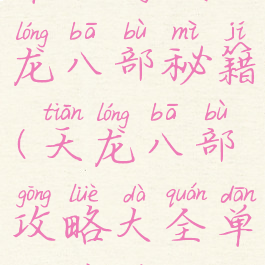 lóng bā bù mì jí
龙八部秘籍
tiān lóng bā bù
(天龙八部
gōng lüè dà quán dān
攻略大全单